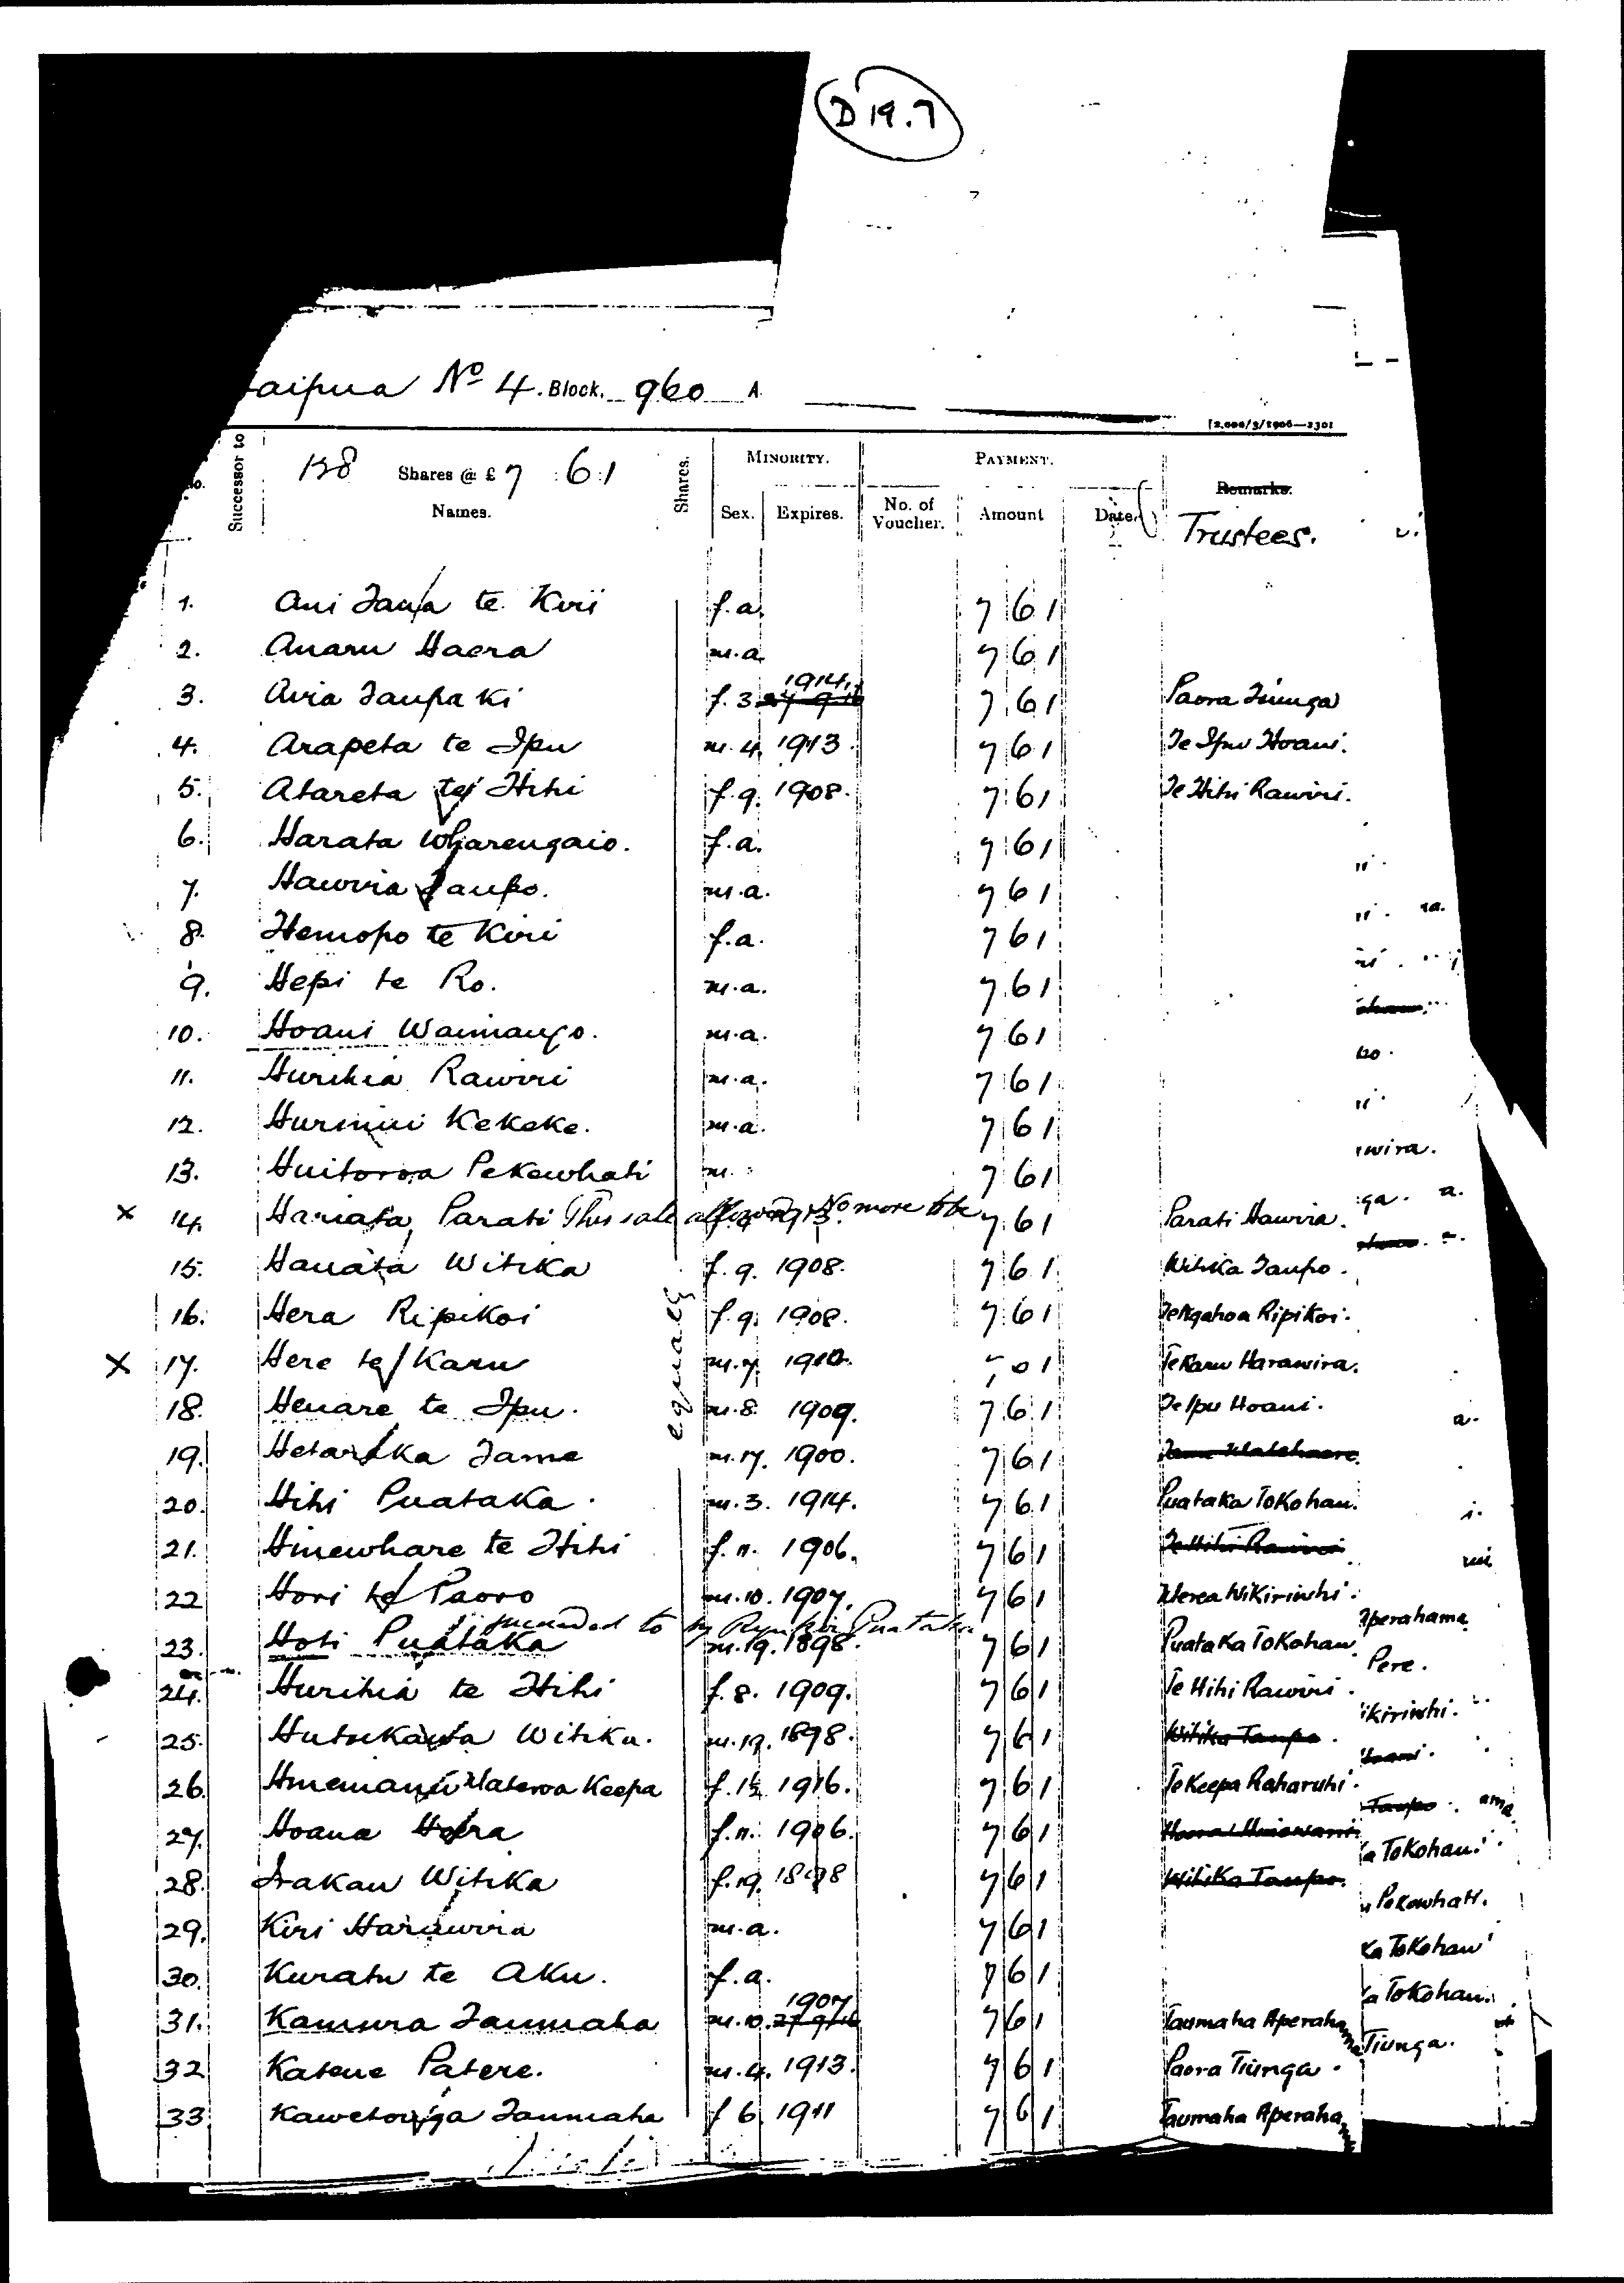 D 19.7
aipua No 4. Block. 960 A.
[2,000/3/1906—2301
Successor to
138 Shares @ £7 : 6 : 1
Names.
Shares.
MINORITY.
Sex. Expires.
PAYMENT.
No. of Voucher. Amount Date.
Remarks.
Trustees.
1. Ani Taua te Kiri f.a. 7 6 1
2. Anaru Haera m.a. 7 6 1
3. Aria Taupaki f. 3 1914. 7 6 1 Paora Tiunga
4. Arapeta te Ipu m. 4. 1913. 7 6 1 Te Ipu Hoani.
5. Atareta te Hihi f. 9. 1908. 7 6 1 Te Hihi Rawiri.
6. Harata Wharengaio. f.a. 7 6 1
7. Hawira Taupo. m.a. 7 6 1
8. Hemopo te Kiri f.a. 7 6 1
9. Hepi te Ro. m.a. 7 6 1
10. Hoani Waimango. m.a. 7 6 1
11. Hurihia Rawiri m.a. 7 6 1
12. Kekeke. m.a. 7 6 1
13. Huitoroa Pekewhati m. 7 6 1
X 14. Hariata Parati This sale allowed No more to be 7 6 1 Parati Hawira.
15. Witika f. 9. 1908. 7 6 1 Witika Taupo.
16. Hera Ripikoi f. 9. 1908. 7 6 1 Te Ngahoa Ripikoi.
X 17. Here te Karu m. 7. 1910. Te Karu Harawira.
equally
18. Henare te Ipu. m. 8. 1909. 7 6 1 Te Ipu Hoani.
19. Hetaraka Tame m. 17. 1900. 7 6 1
20. Hihi Puataka. m. 3. 1914. 7 6 1 Puataka Tokohau.
21. Hinewhare te Hihi f. 11. 1906. 7 6 1 Te Hihi Rawiri
22 Hori te Paoro m. 10. 1907. 7 6 1 Werea Wikiriwhi.
succeeded to by Puataka
23. Hoti Puataka m. 19. 1898. 7 6 1 Puataka Tokohau.
24. Hurihia te Hihi f. 8. 1909. 7 6 1 Te Hihi Rawiri.
25. Witika. m. 19. 1898. 7 6 1 Witika Taupo.
26. Materoa Keepa f. 1½ 1916. 7 6 1 Te Keepa Raharuhi.
27. Hoana Hoera f. 11. 1906. 7 6 1
28. Irakau Witika f. 19. 1898 7 6 1 Witika Taupo.
29. Kiri Harawira m.a. 7 6 1
30. Kuratu te Aku. f.a. 7 6 1
31. Kamura Taumaha m. 10. 1907 7 6 1 Taumaha Aperahama
32 Katene Patere. m. 4. 1913. 7 6 1 Paora Tiunga.
33. Kawetonga Taumaha f 6. 1911 7 6 1 Taumaha Aperahama
wira.
ga. a.
perahama
Pere.
ikiriwhi.
Taupo. ama
a Tokohau.
Pekewhati.
ka Tokohau
a Tokohau.
Tiunga.